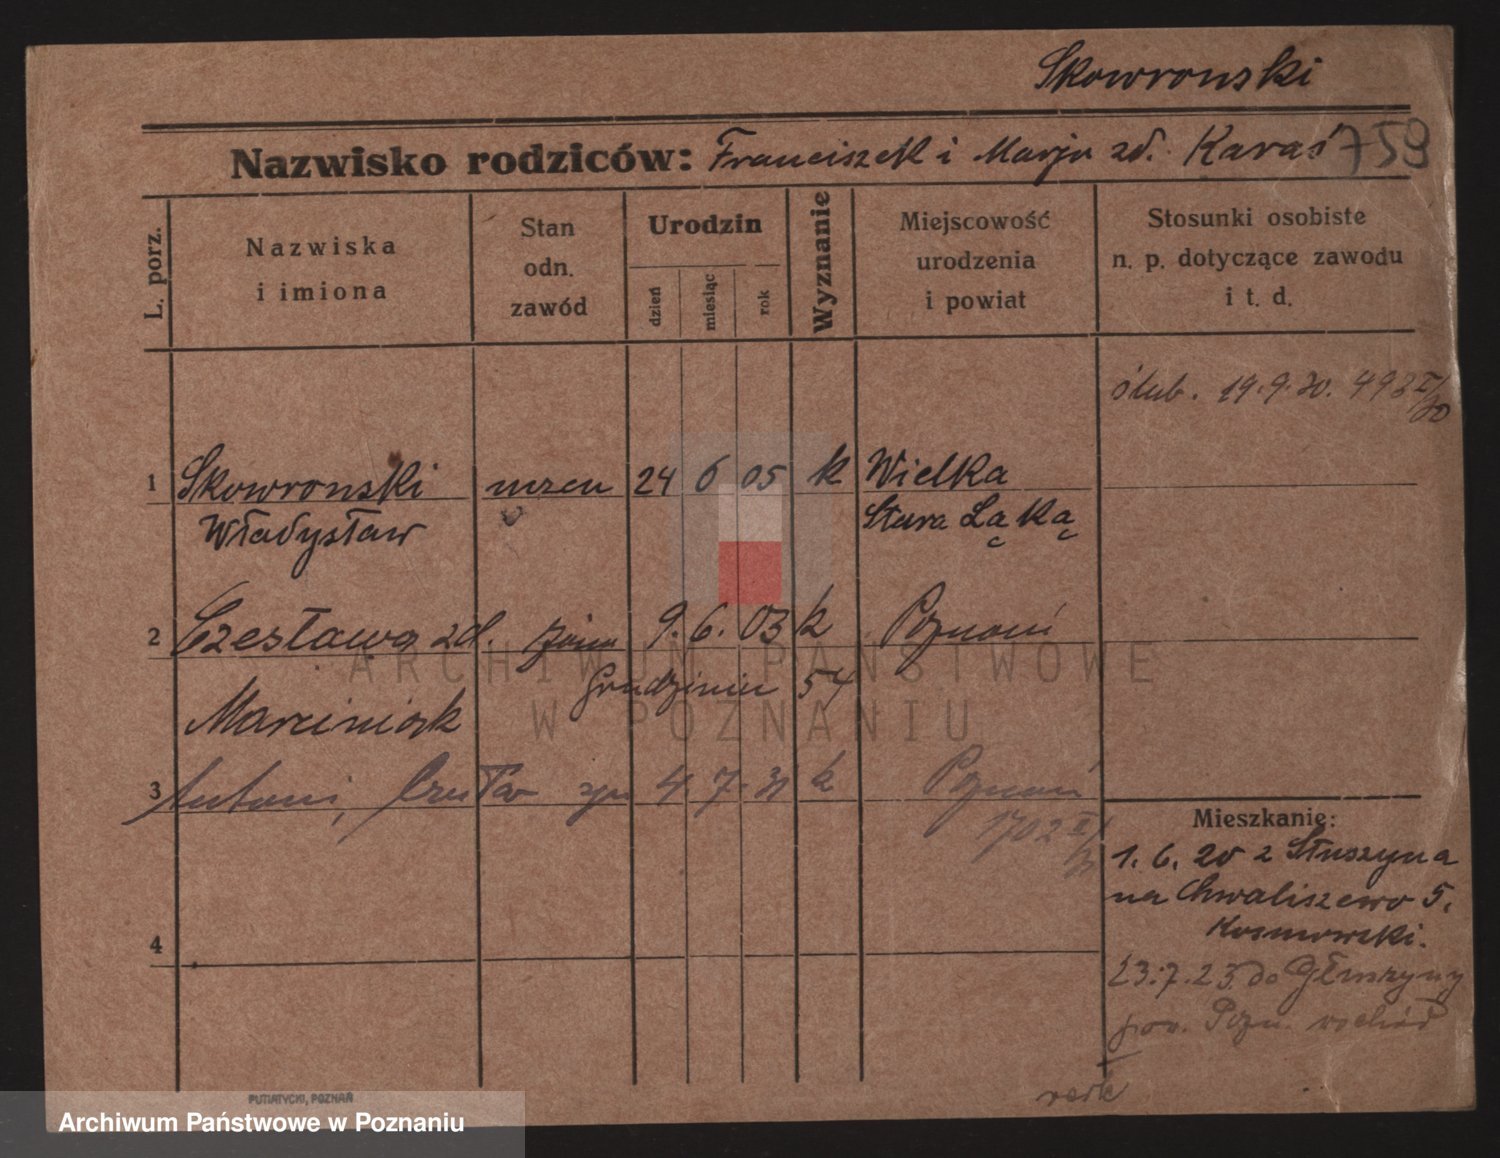 Skowronski
Nazwisko rodziców: Franciszek i Marja zd. Karaś 759
L. porz.
Nazwiska i imiona
Stan odn. zawód
Urodzin
dzień
miesiąc
rok
Wyznanie
Miejscowość urodzenia i powiat
Stosunki osobiste n. p. dotyczące zawodu i t. d.
ślub. 19.9.30. 493 II/30
1 Skowronski uczeń 24 6 05 k Wielka
Władysław Stara Łąka
2 Czesława zd. żona 9. 6. 03 k Poznań
Grudzieniec 54
Marciniak
3 Antoni, syn 4. 7. 31 k Poznań
1702 II/31
4
Mieszkanie:
1. 6. 20 z Głuszyna
na Chwaliszewo 5.
Kosmowski.
23.7.23 do Głuszyny
pow. Pozn. wschód
PUTIATYCKI, POZNAŃ
ARCHIWUM PAŃSTWOWE
W POZNANIU
Archiwum Państwowe w Poznaniu